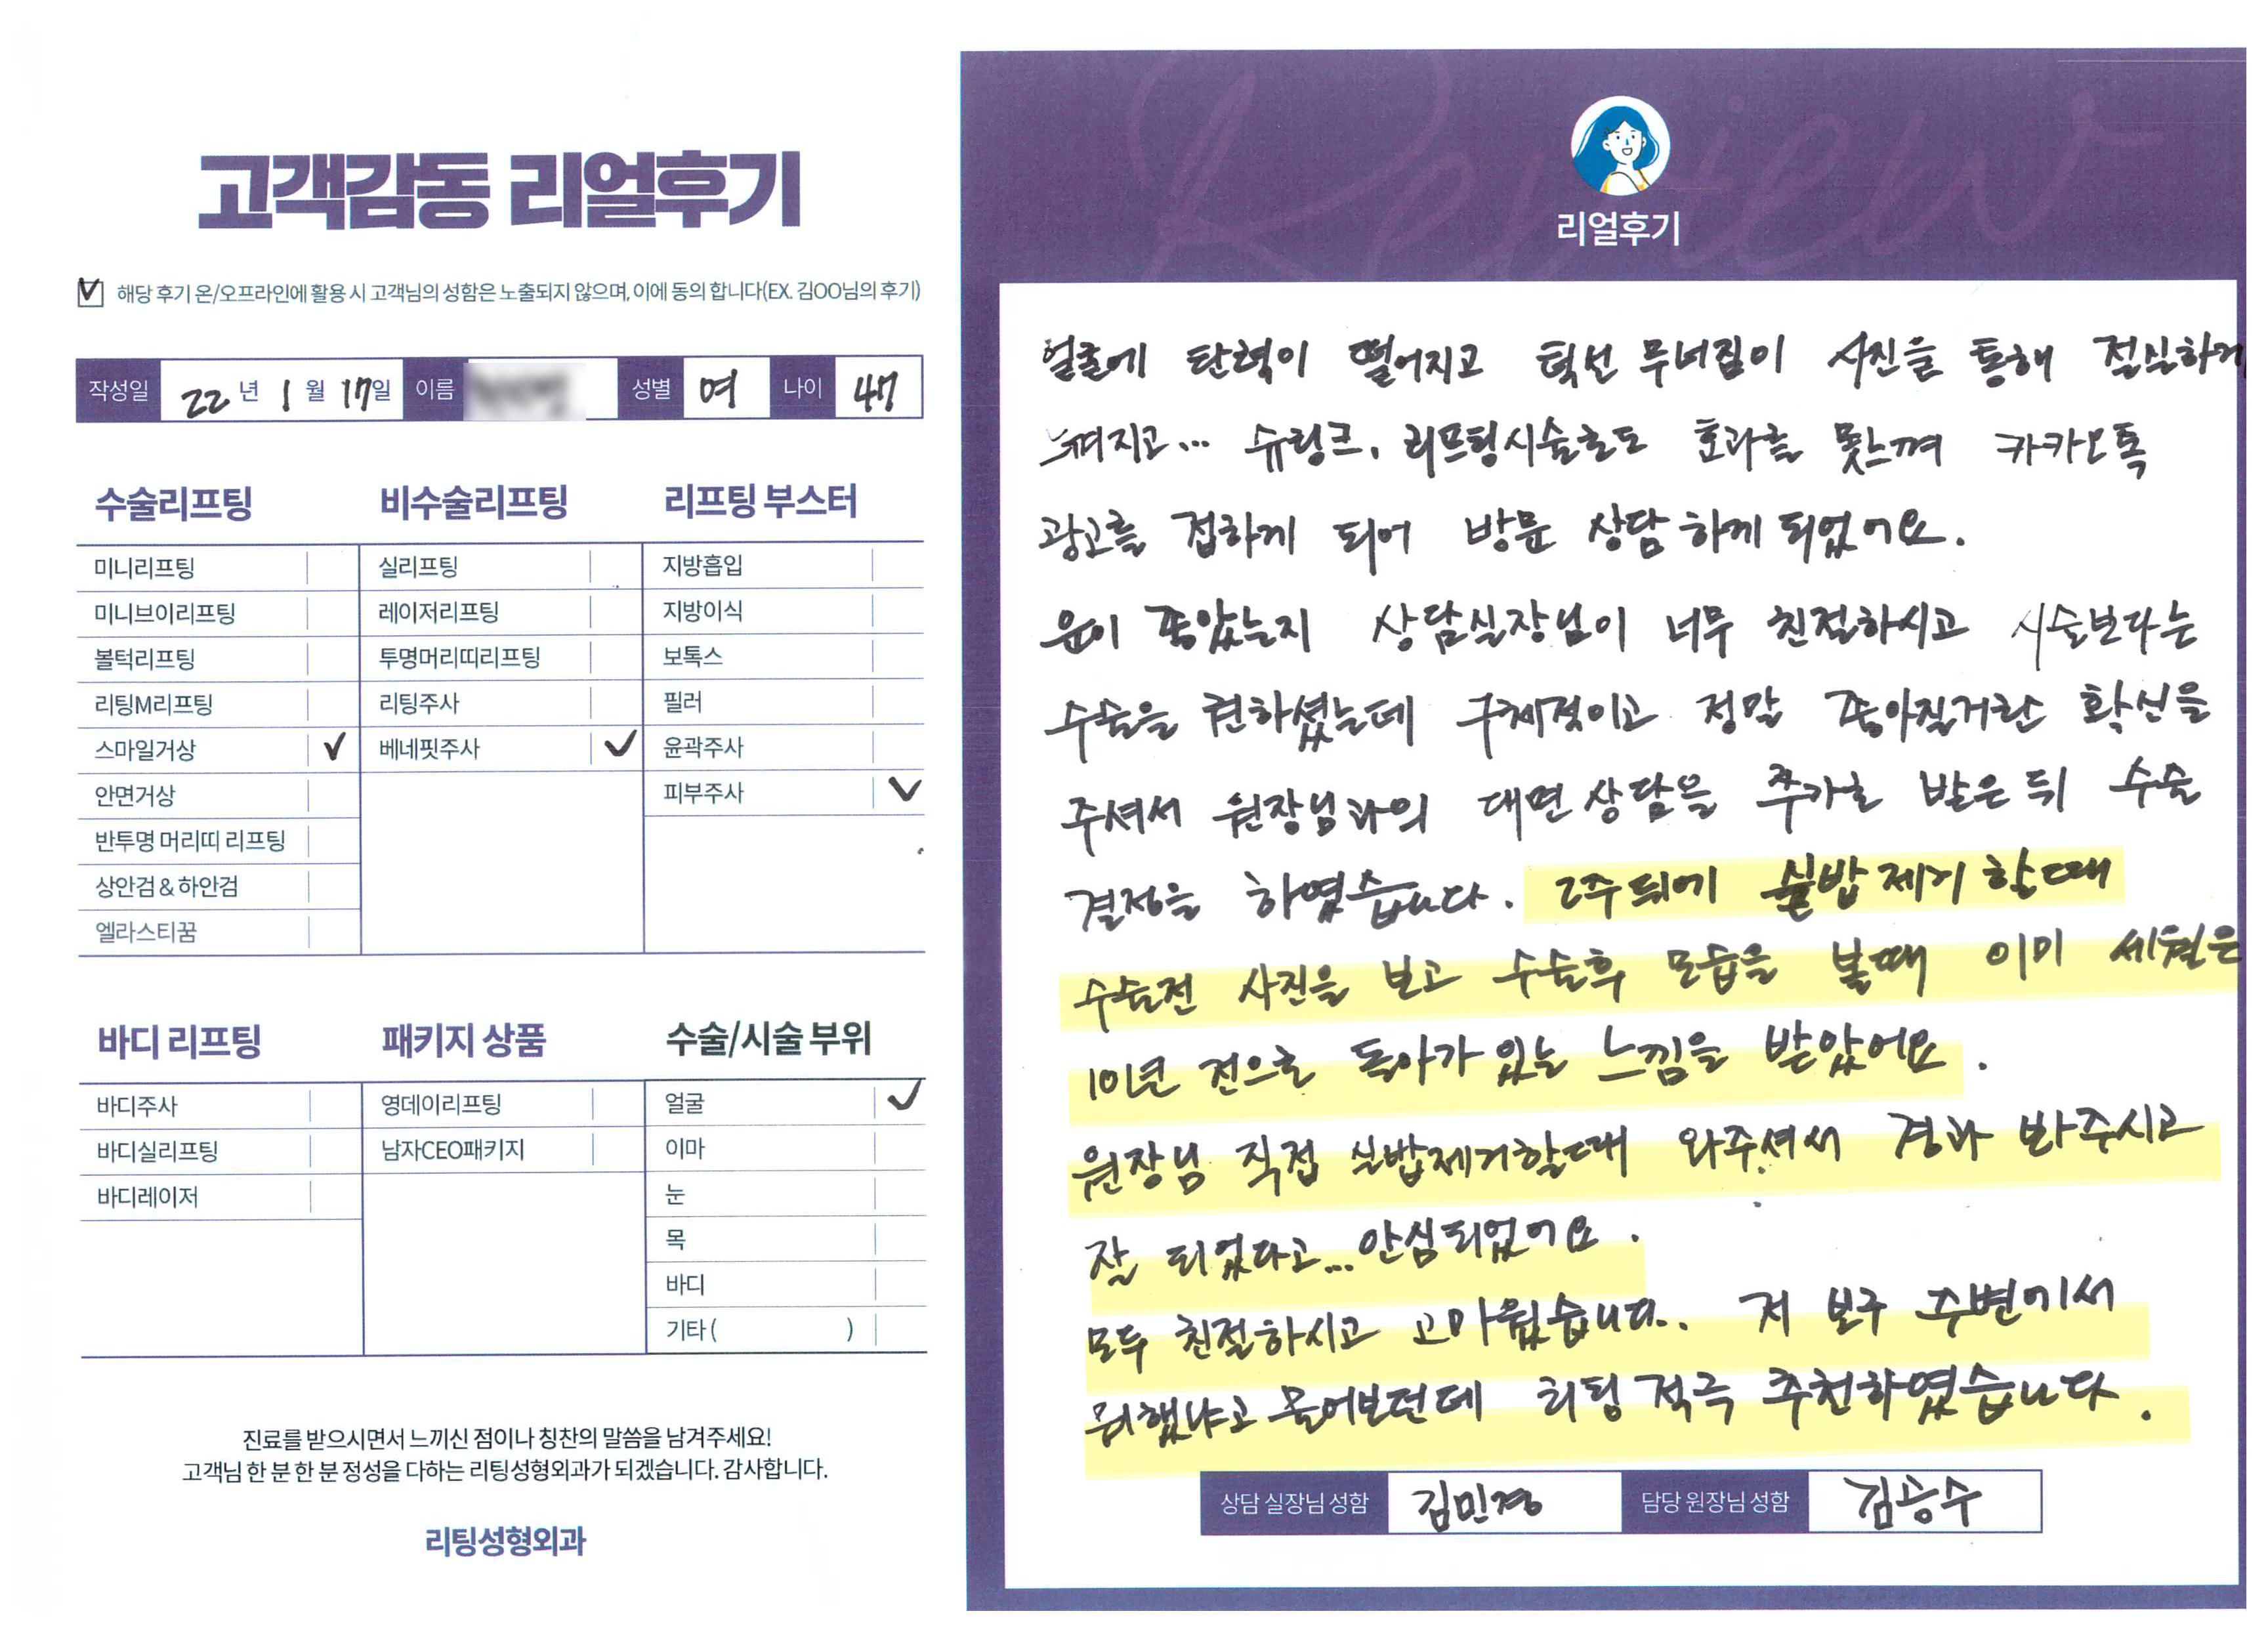 고객감동 리얼후기
해당 후기 온/오프라인에 활용 시 고객님의 성함은 노출되지 않으며, 이에 동의 합니다(EX. 김OO님의 후기)
작성일 22년 1월 17일 이름 성별 여 나이 47
수술리프팅
미니리프팅
미니브이리프팅
볼턱리프팅
리팅M리프팅
스마일거상
안면거상
반투명 머리띠 리프팅
상안검 & 하안검
엘라스티꿈
비수술리프팅
실리프팅
레이저리프팅
투명머리띠리프팅
리팅주사
베네핏주사
리프팅 부스터
지방흡입
지방이식
보톡스
필러
윤곽주사
피부주사
바디 리프팅
바디주사
바디실리프팅
바디레이저
패키지 상품
영데이리프팅
남자CEO패키지
수술/시술 부위
얼굴
이마
눈
목
바디
기타 ( )
진료를 받으시면서 느끼신 점이나 칭찬의 말씀을 남겨주세요!
고객님 한 분 한 분 정성을 다하는 리팅성형외과가 되겠습니다. 감사합니다.
리팅성형외과
Review
리얼후기
얼굴에 탄력이 떨어지고 턱선 무너짐이 사진을 통해 절실하게
느껴지고... 슈링크, 리프팅시술로도 효과를 못느껴 카카오톡
광고를 접하게 되어 방문 상담하게 되었어요.
운이 좋았는지 상담실장님이 너무 친절하시고 시술보다는
수술을 권하셨는데 구체적이고 정말 좋아질거란 확신을
주셔서 원장님과의 대면상담을 추가로 받은 뒤 수술
결정을 하였습니다. 2주뒤에 실밥제거할때
수술전 사진을 보고 수술후 모습을 볼때 이미 세월은
10년 전으로 돌아가 있는 느낌을 받았어요.
원장님 직접 실밥제거할때 와주셔서 경과 봐주시고
잘 되었다고... 안심되었어요.
모두 친절하시고 고마웠습니다. 저 보구 주변에서
뭐했냐고 물어보던데 리팅 적극 추천하였습니다.
상담 실장님 성함 김민경 담당 원장님 성함 김승수